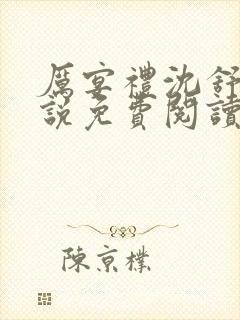 厲宴禮沈舒
說免費閱讀
陳京樸